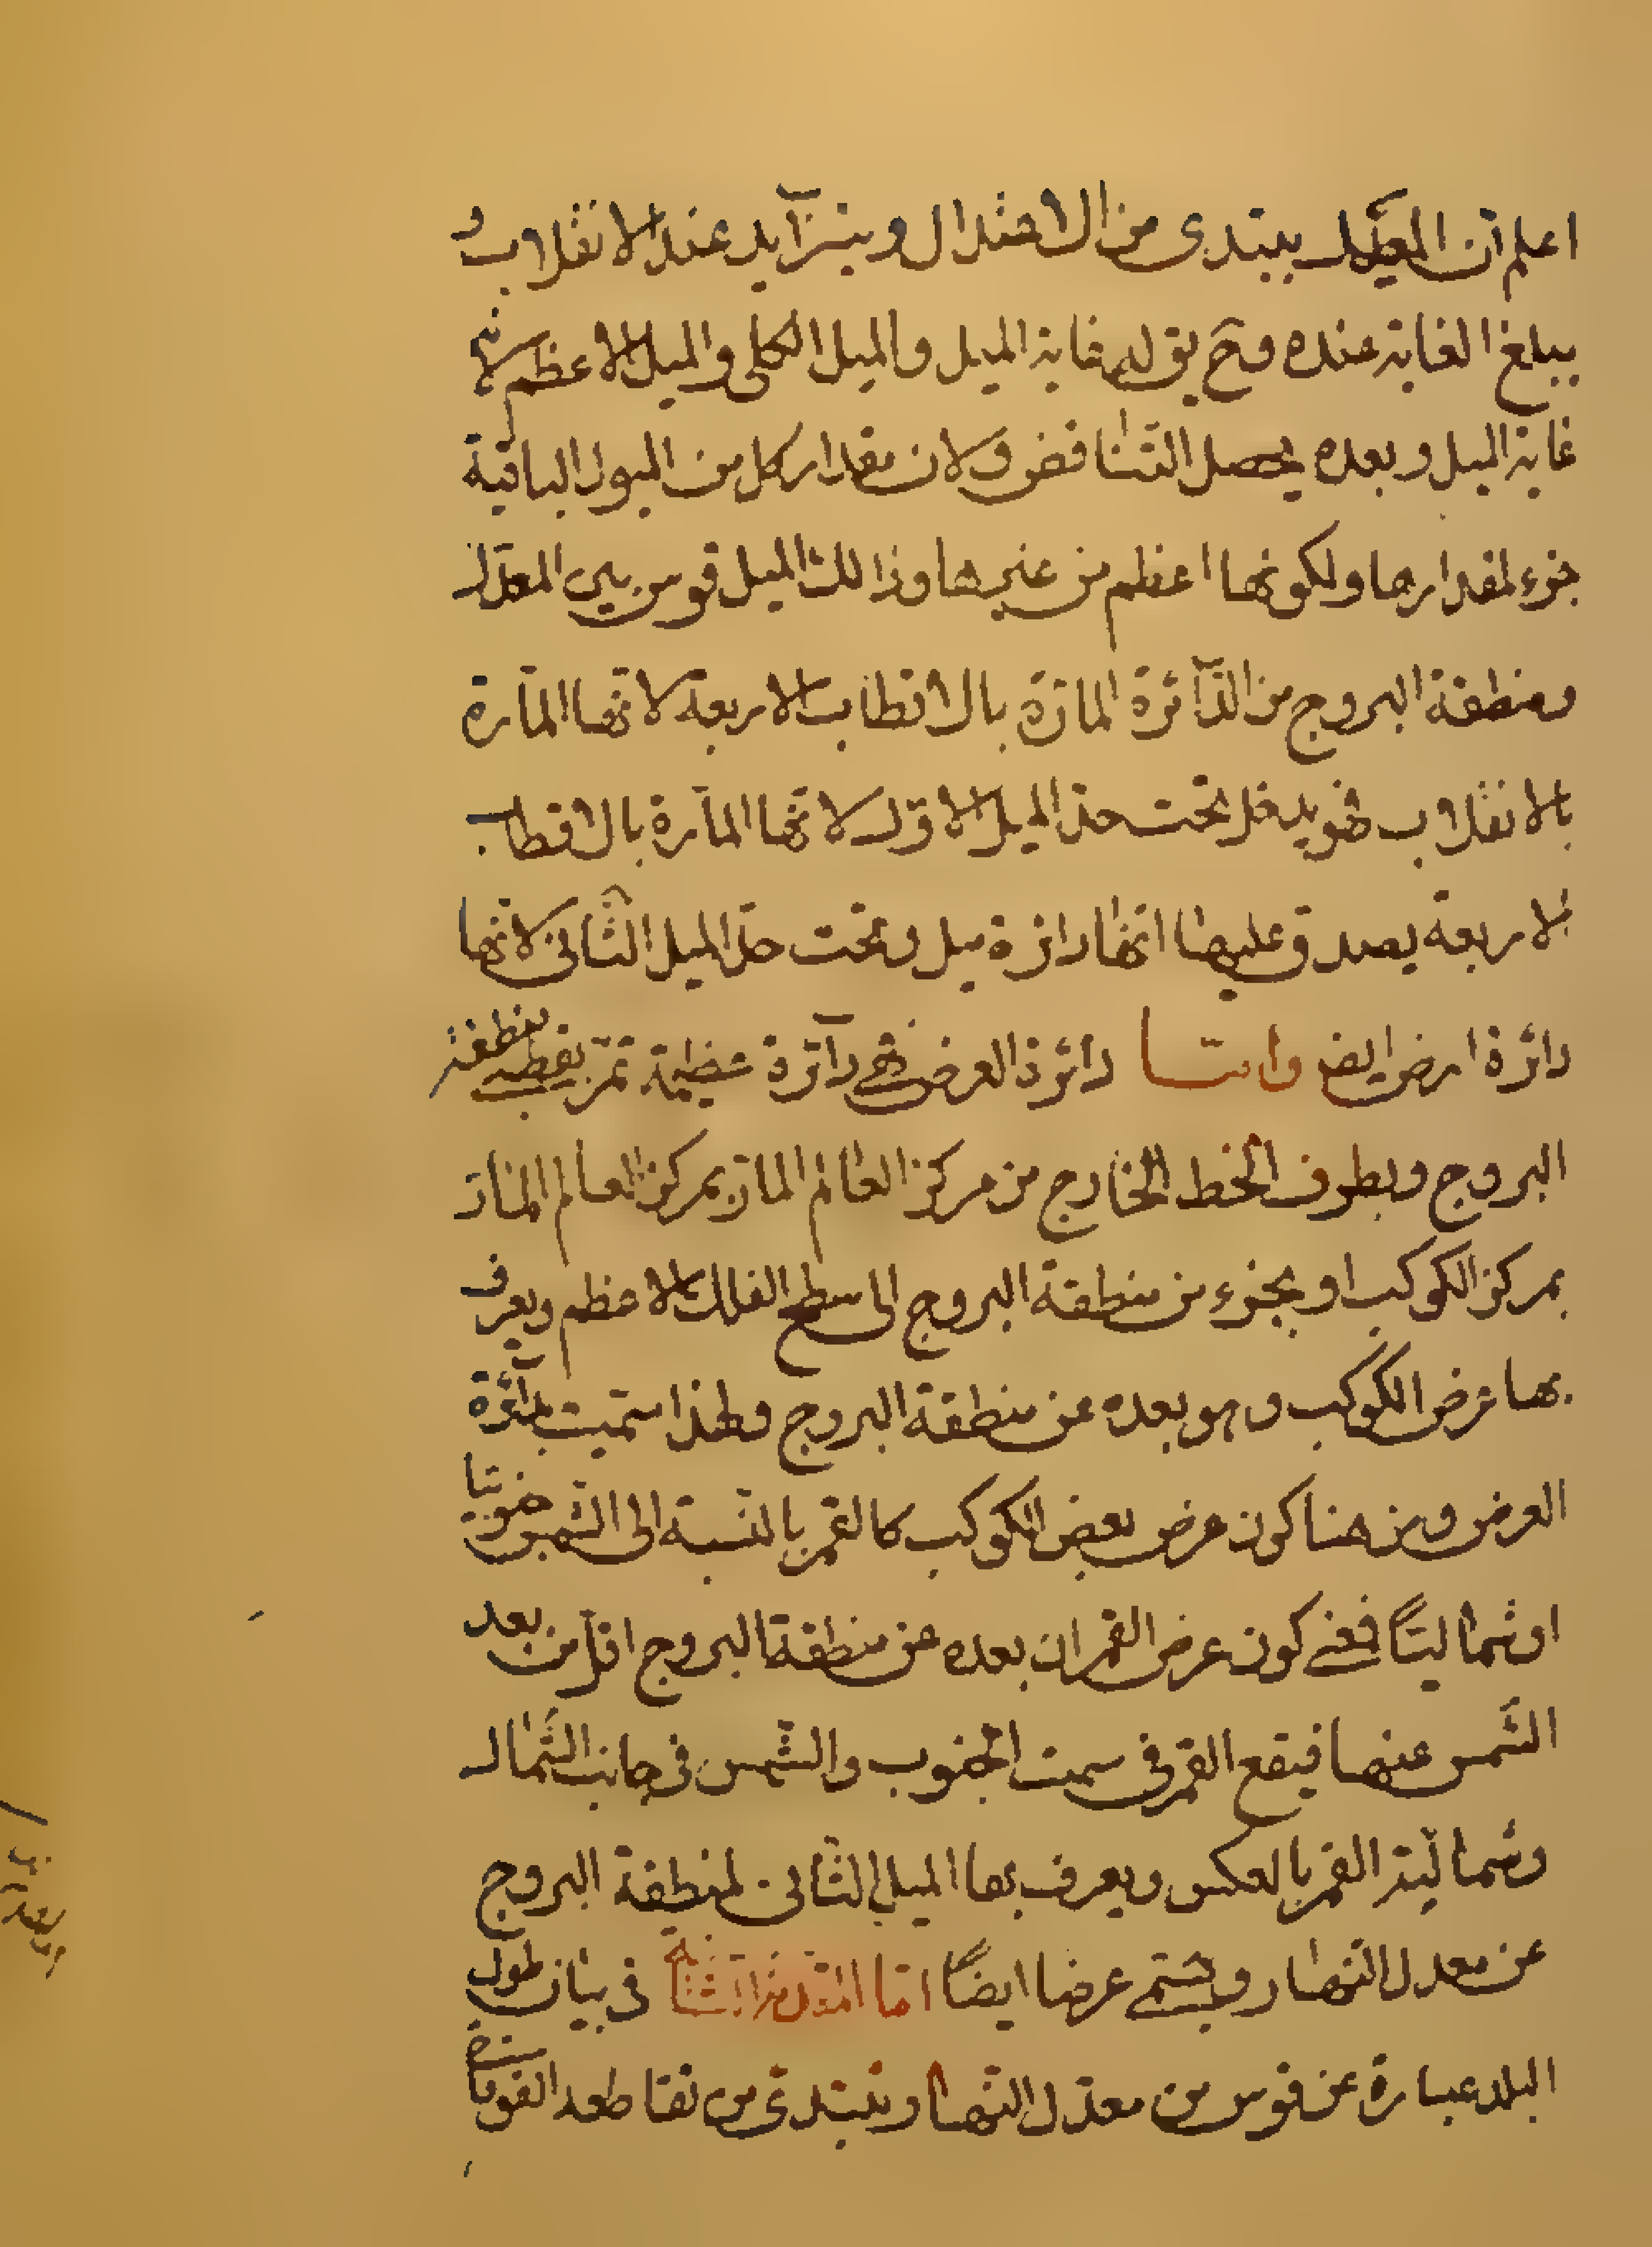 اعلم ان الميل يبتدى من الاعتدال ويتزآيد عند الانقلاب و
يبلغ الغاية عنده وح يق له غاية الميل والميل الكلى والميل الاعظم لانه
غاية الميل وبعده يحصل التناقض ولان مقدار كل من الميول الباقية
جزء لمقدارها ولكونها اعظم من غيرها وذالك الميل قوس بين المعدل
ومنطقة البروج من الدآئرة المارة بالاقطاب الاربعة لانها المارة
بالانقلاب فهو يدخل تحت حد الميل الاول لانها المارة بالاقطاب
الاربعة يصدق عليها انها دائرة ميل وتحت حد الميل الثانى لانها
دائرة ارض ايض وامّا دائرة العرض فهى دآئرة عظيمة تمر بقطب منطقة
البروج وبطرف الخط الخارج من مركز العالم المار بمركز العالم المار
بمركز الكوكب او بجزء من منطقة البروج الى سطح الفلك الاعظم ويعرف
بها عرض الكوكب وهو بعده عن منطقة البروج ولهذا سمّيت بدآئرة
العرض ومن هنا كون عرض بعض الكوكب كالقمر بالنسبة الى الشمس جنوبيا
او شماليّاً ففى كون عرض القمر ان بعده عن منطقة البروج اقل من بعد
الشمس عنها فيقع القمر فى سمت الجنوب والشمس فى جانب الشمال
وشماليّة القمر بالعكس ويعرف بها الميل الثانى لمنطقة البروج
عن معدل النهار ويسمى عرضا ايضاً امّا المقدمة الثانية فى بيان طول
البلد عبارة عن قوس من معدّل النها ويبتدى من تقاطعه الفوقا